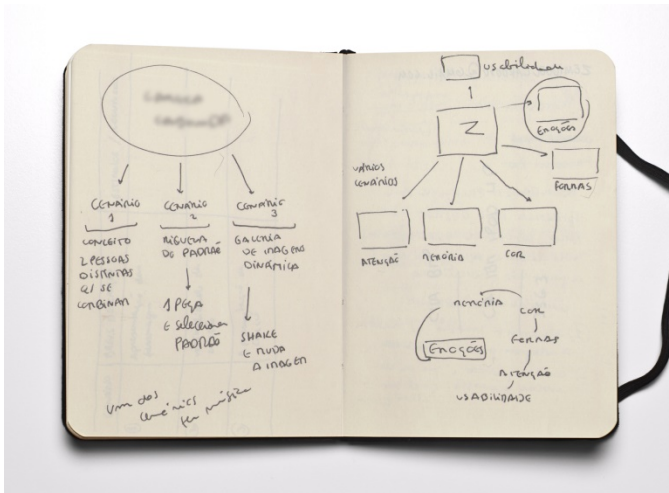 CENÁRIO
1
CONCEITO
2 PESSOAS
DISTINTAS
Q/ SE
COMBINAR
CENÁRIO
2
RIQUEZA
DO PADRÃO
1 PEÇA
E selecionar
PADRÃO
CENÁRIO
3
GALERIA
DE IMAGENS
DINÂMICA
SHAKE
E MUDA
A IMAGEM
um dos
cenários
tem música
usabilidade
Z
EMOÇÕES
FORMAS
VÁRIOS
CENÁRIOS
ATENÇÃO
MEMÓRIA
COR
MEMÓRIA
COR
FORMAS
EMOÇÕES
ATENÇÃO
USABILIDADE